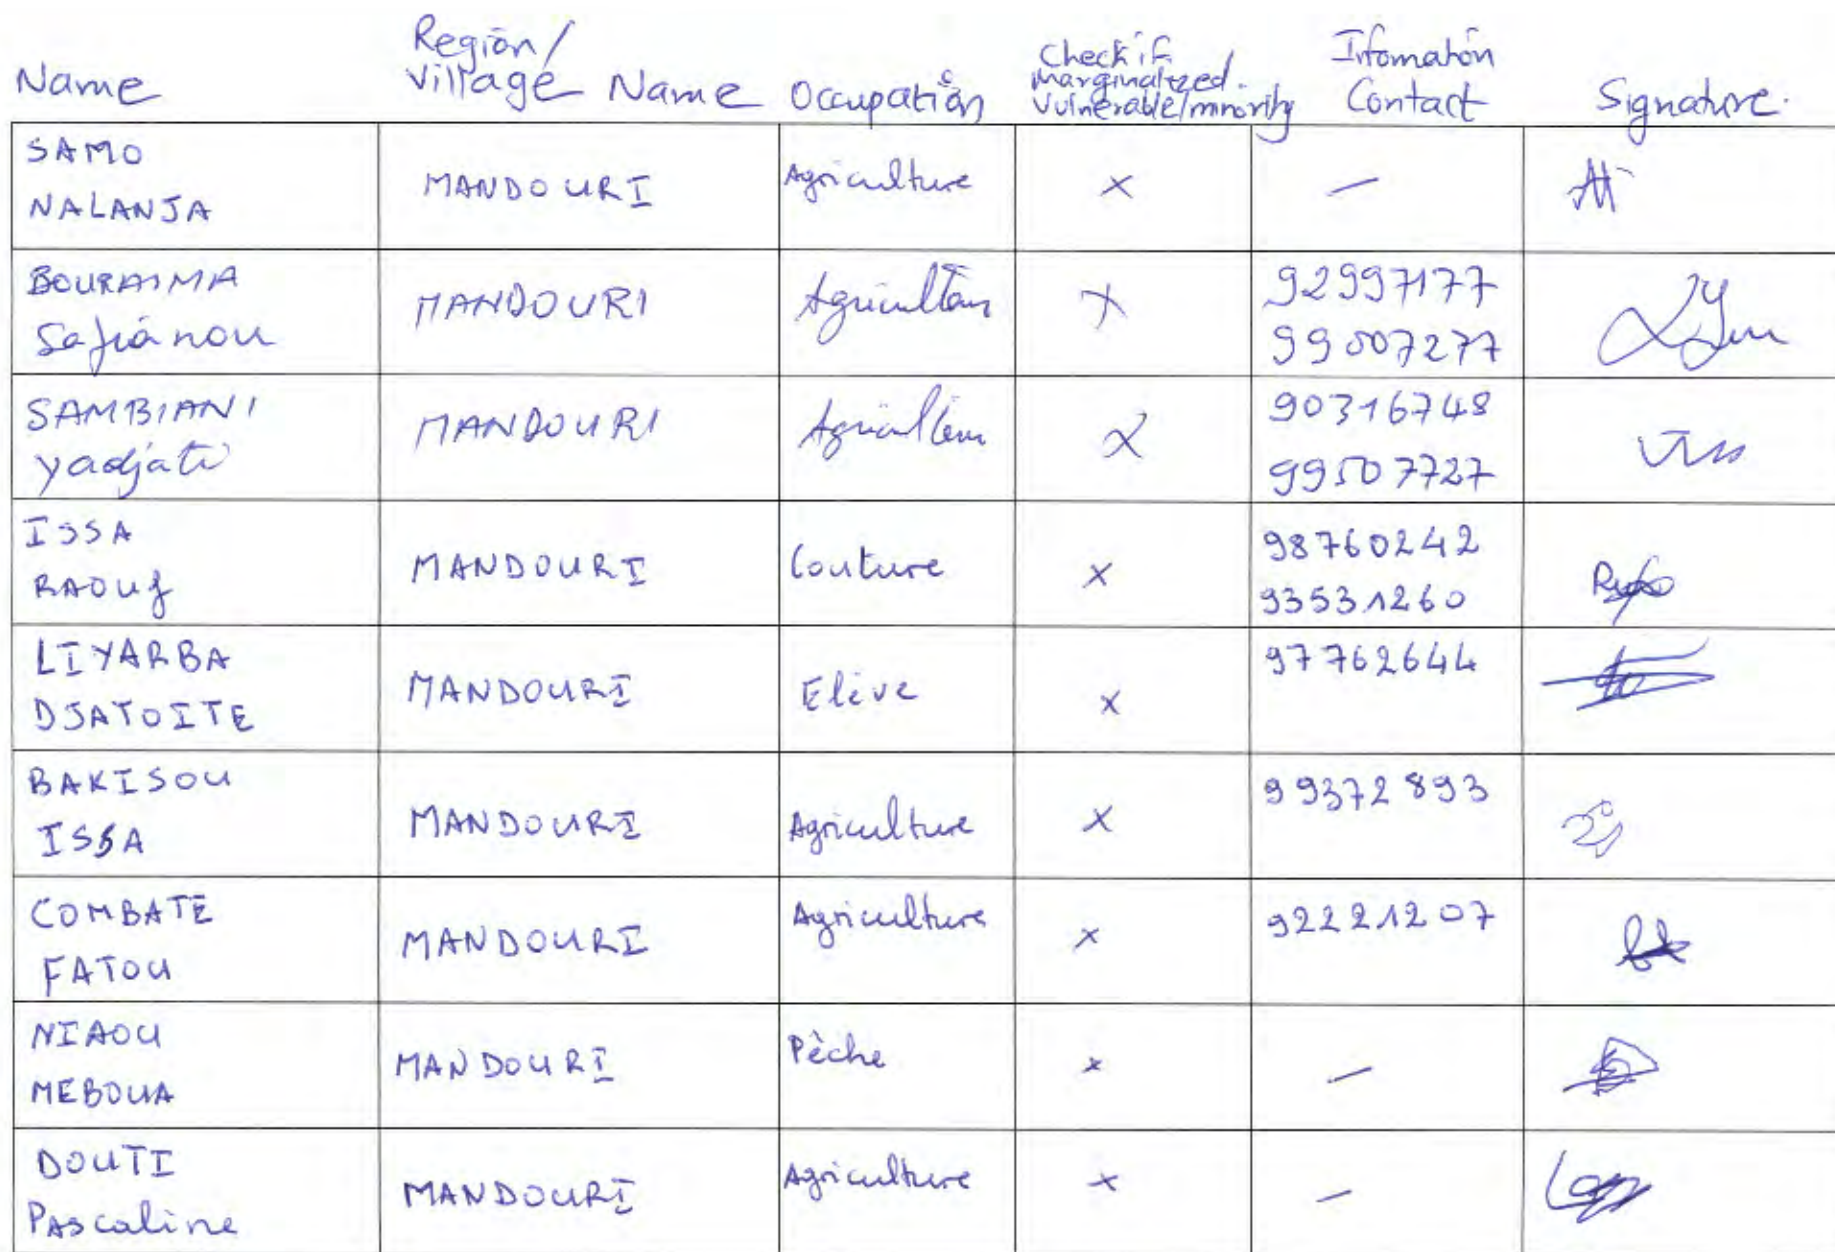 Name
Région/
Village Name
Occupation
Check if
marginalized.
Vulnerable/mnority
Ifomation
Contact
Signature.
SAMO
NALANJA
MANDOURI
Agriculture
×
—
BOURAIMA
Safianou
MANDOURI
Agriculteur
×
92997177
99507277
SAMBIANI
yadjati
MANDOURI
Agriculteur
×
90316748
99507727
ISSA
RAOUf
MANDOURI
Couture
×
98760242
93531260
LIYARBA
DJATOITE
MANDOURI
Elève
×
97762644
BAKISOU
ISSA
MANDOURI
Agriculture
×
99372893
COMBATE
FATOU
MANDOURI
Agriculture
×
92221207
NIAOU
MEBOUA
MANDOURI
Pêche
×
—
DOUTI
PAscaline
MANDOURI
Agriculture
×
—